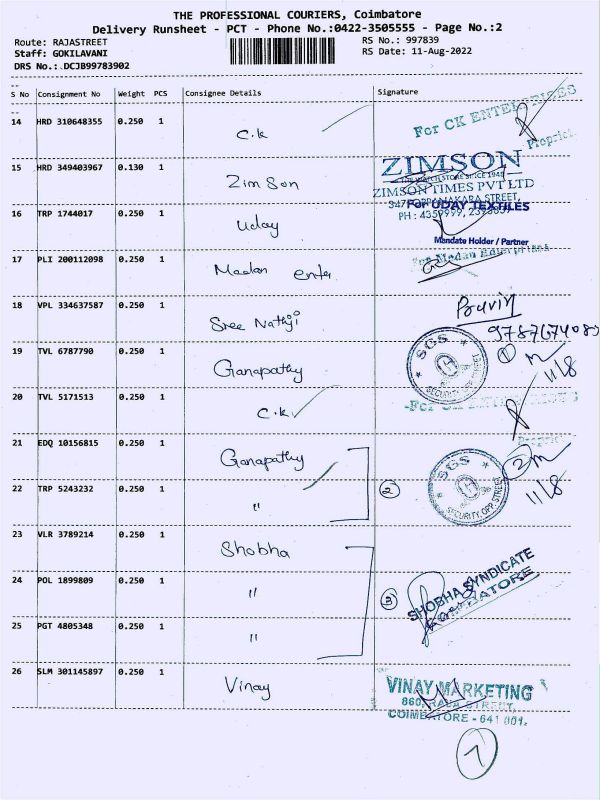 THE PROFESSIONAL COURIERS, Coimbatore
Delivery Runsheet - PCT - Phone No.:0422-3505555 - Page No.:2
Route: RAJASTREET RS No.: 997839
Staff: GOKILAVANI RS Date: 11-Aug-2022
DRS No.:.DCJB99783902
S No Consignment No Weight PCS Consignee Details Signature
14 HRD 310648355 0.250 1 C.k For CK ENTERPRISES
Propriet
15 HRD 349403967 0.130 1 Zimson ZIMSON
ZIMSON TIMES PVT LTD
16 TRP 1744017 0.250 1 Uday For UDAY TEXTILES
PH : 4359999,
Mandate Holder / Partner
17 PLI 200112098 0.250 1 Madan enter For Madan Enterprises
18 VPL 334637587 0.250 1 Sree Nathji Pravin
19 TVL 6787790 0.250 1 Ganapathy SGS SECURITY, OPP. STREET 1 11/8
20 TVL 5171513 0.250 1 C.k
21 EDQ 10156815 0.250 1 Ganapathy
22 TRP 5243232 0.250 1 " 2 SGS SECURITY, OPP. STREET 2 11/8
23 VLR 3789214 0.250 1 Shobha
24 POL 1899809 0.250 1 " 3 SHOBHA SYNDICATE
COIMBATORE
25 PGT 4805348 0.250 1 "
26 SLM 301145897 0.250 1 Vinay VINAY MARKETING
860, RAJA STREET,
COIMBATORE - 641 001.
7